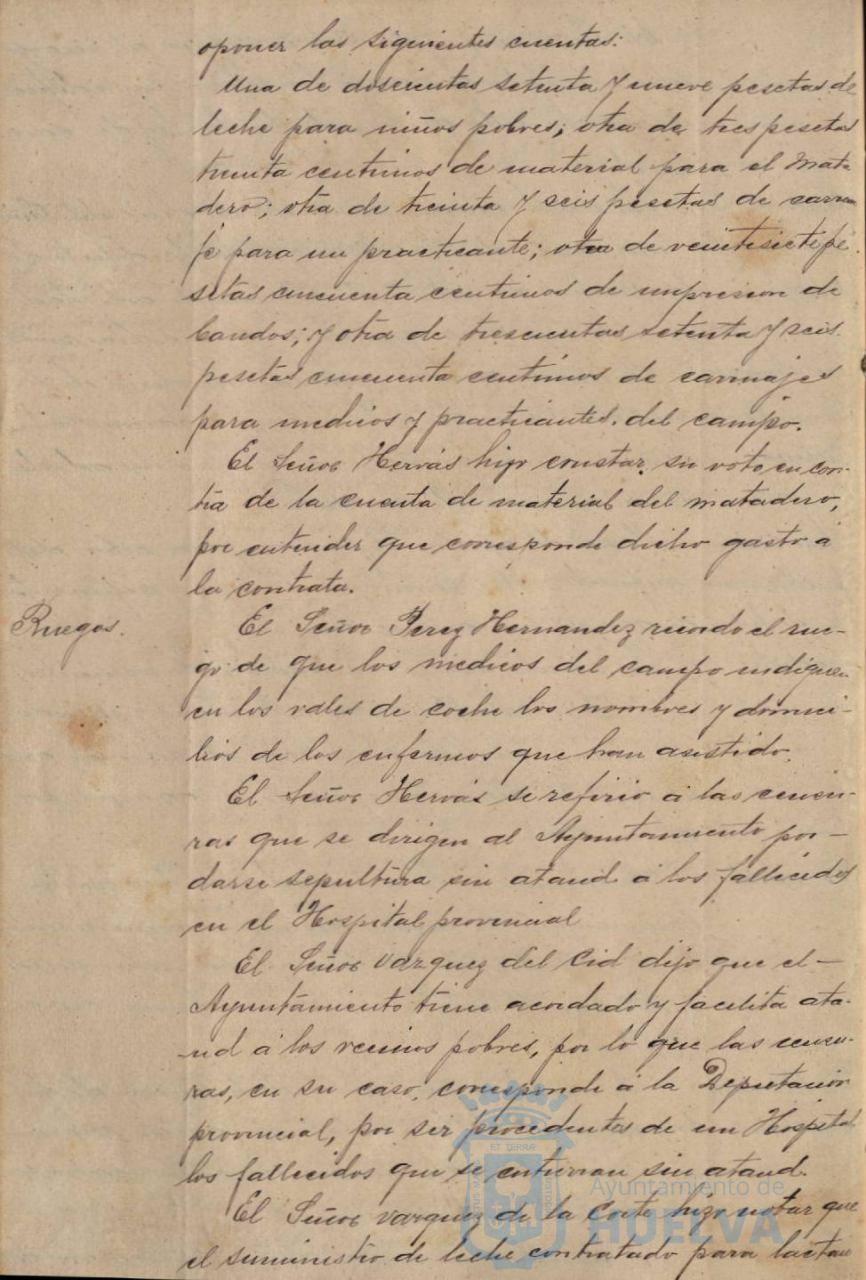 oponer las siguientes cuentas:
Una de doscientas setenta y nueve pesetas de
leche para niños pobres; otra de tres pesetas
treinta centimos de material para el Mata-
dero; otra de treinta y seis pesetas de carrua
je para un practicante; otra de veintisiete pe
setas cincuenta centimos de impresion de
bandos; y otra de trescientas setenta y seis
pesetas cincuenta centimos de carruajes
para medicos y practicantes del campo.
El Señor Hervás hizo constar su voto en con-
tra de la cuenta de material del matadero,
por entender que corresponde dicho gasto á
la contrata.
Ruegos.
El Señor Perez Hernandez recordo el rue-
go de que los medicos del campo indiquen
en los vales de coche los nombres y domici-
lios de los enfermos que han asistido.
El Señor Hervás se refirio á las censu-
ras que se dirigen al Ayuntamiento por
darse sepultura sin ataud á los fallecidos
en el Hospital provincial
El Señor Vazquez del Cid dijo que el
Ayuntamiento tiene acordado y facilita ata-
ud á los vecinos pobres, por lo que las censu-
ras, en su caso, corresponde á la Diputacion
provincial, por ser procedentes de un Hospital
los fallecidos que se entierran sin ataud.
El Señor Vazquez de la Corte hizo notar que
el suministro de leche contratado para lactan
ET TERRÆ
Ayuntamiento de
HUELVA